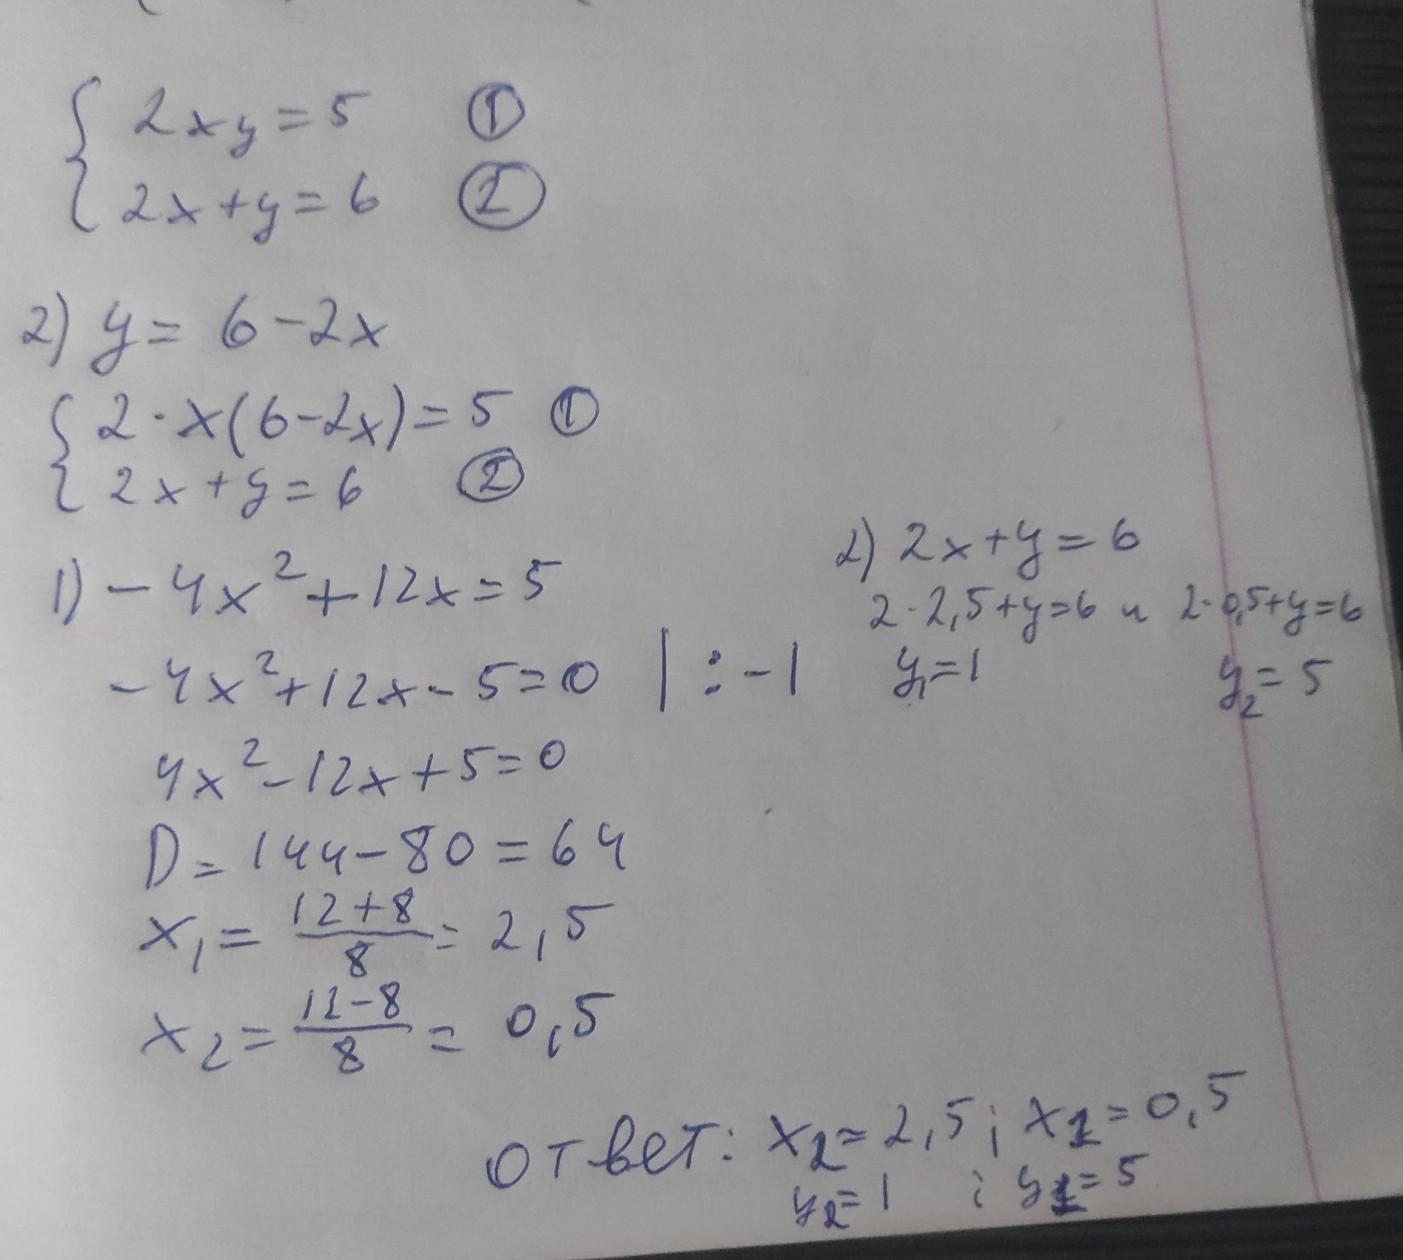 { 2xy = 5 ①
{ 2x + y = 6 ②
2) y = 6 - 2x
{ 2 · x(6 - 2x) = 5 ①
{ 2x + y = 6 ②
1) - 4x² + 12x = 5
- 4x² + 12x - 5 = 0 | : - 1
4x² - 12x + 5 = 0
D = 144 - 80 = 64
x₁ = (12 + 8)/8 = 2,5
x₂ = (12 - 8)/8 = 0,5
2) 2x + y = 6
2 · 2,5 + y = 6 и 2 · 0,5 + y = 6
y₁ = 1 y₂ = 5
ответ: x₂ = 2,5 ; x₁ = 0,5
y₂ = 1 ; y₁ = 5